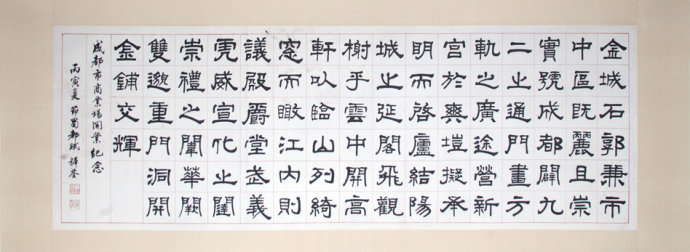 金城石郭兼帀
中區既麗且崇
實號成都闢九
二之通門畫方
軌之廣途營新
宮於爽塏擬承
明而啓廬結陽
城之延閣飛觀
榭乎雲中開高
軒以臨山列綺
窓而瞰江内則
議殿爵堂武義
虎威宣化之闥
崇禮之闈華闕
雙邈重門洞開
金鋪交輝
成都市商業場開業紀念
丙寅夏節蜀都賦